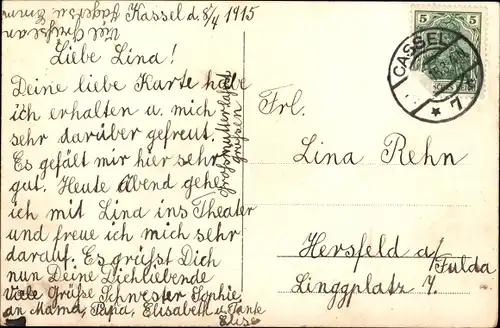 Kassel d. 8/4 1915
Liebe Lina!
Deine liebe Karte habe
ich erhalten u. mich
sehr darüber gefreut.
Es gefält mir hier sehr
gut. Heute Abend gehe
ich mit Lina ins Theater
und freue ich mich sehr
darauf. Es grüßt Dich
nun Deine Dichliebende
Schwester Sophie.
Viele Grüße
an Mama, Papa, Elisabeth u. Tante
Elise
Großmutter läßt
grüßen
Viel Grüße an
5 5
CASSEL
* 7
Frl.
Lina Rehn
Hersfeld a/Fulda
Linggplatz 7.